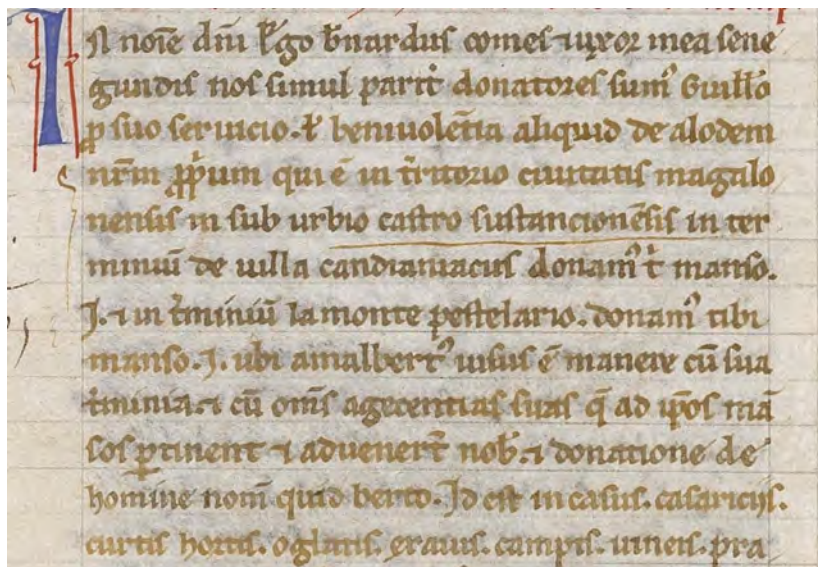 IN noīe dn̄i. Ego b̄nardus comes ⁊ uxor mea sene
gundis nos simul parit̄ donatores sum᷒ Guill̄o
ꝓ suo seruicio. ⁊ beniuolētia aliquid de alodem
nr̄m ꝓprium qui ē in t̄ritorio ciuitatis magalo
nensis in sub urbio castro sustancionēsis in ter
miniū de uilla candianiacus donam᷒ t̄ manso.
J. ⁊ in t̄miniū la monte pestelario. donam᷒ tibi
manso. J. ubi amalbert᷒ uisus ē manere cū sua
t̄minia. ⁊ cū om̄s agecentias suas q̄ ad ip̄os mā
sos ꝑtinent ⁊ aduener̄t nob̄. ⁊ donatione de
homine nom̄ quid bento. Jd est in casis. casariciis.
curtis hortis. oglatis. grauis. campis. uineis. pra